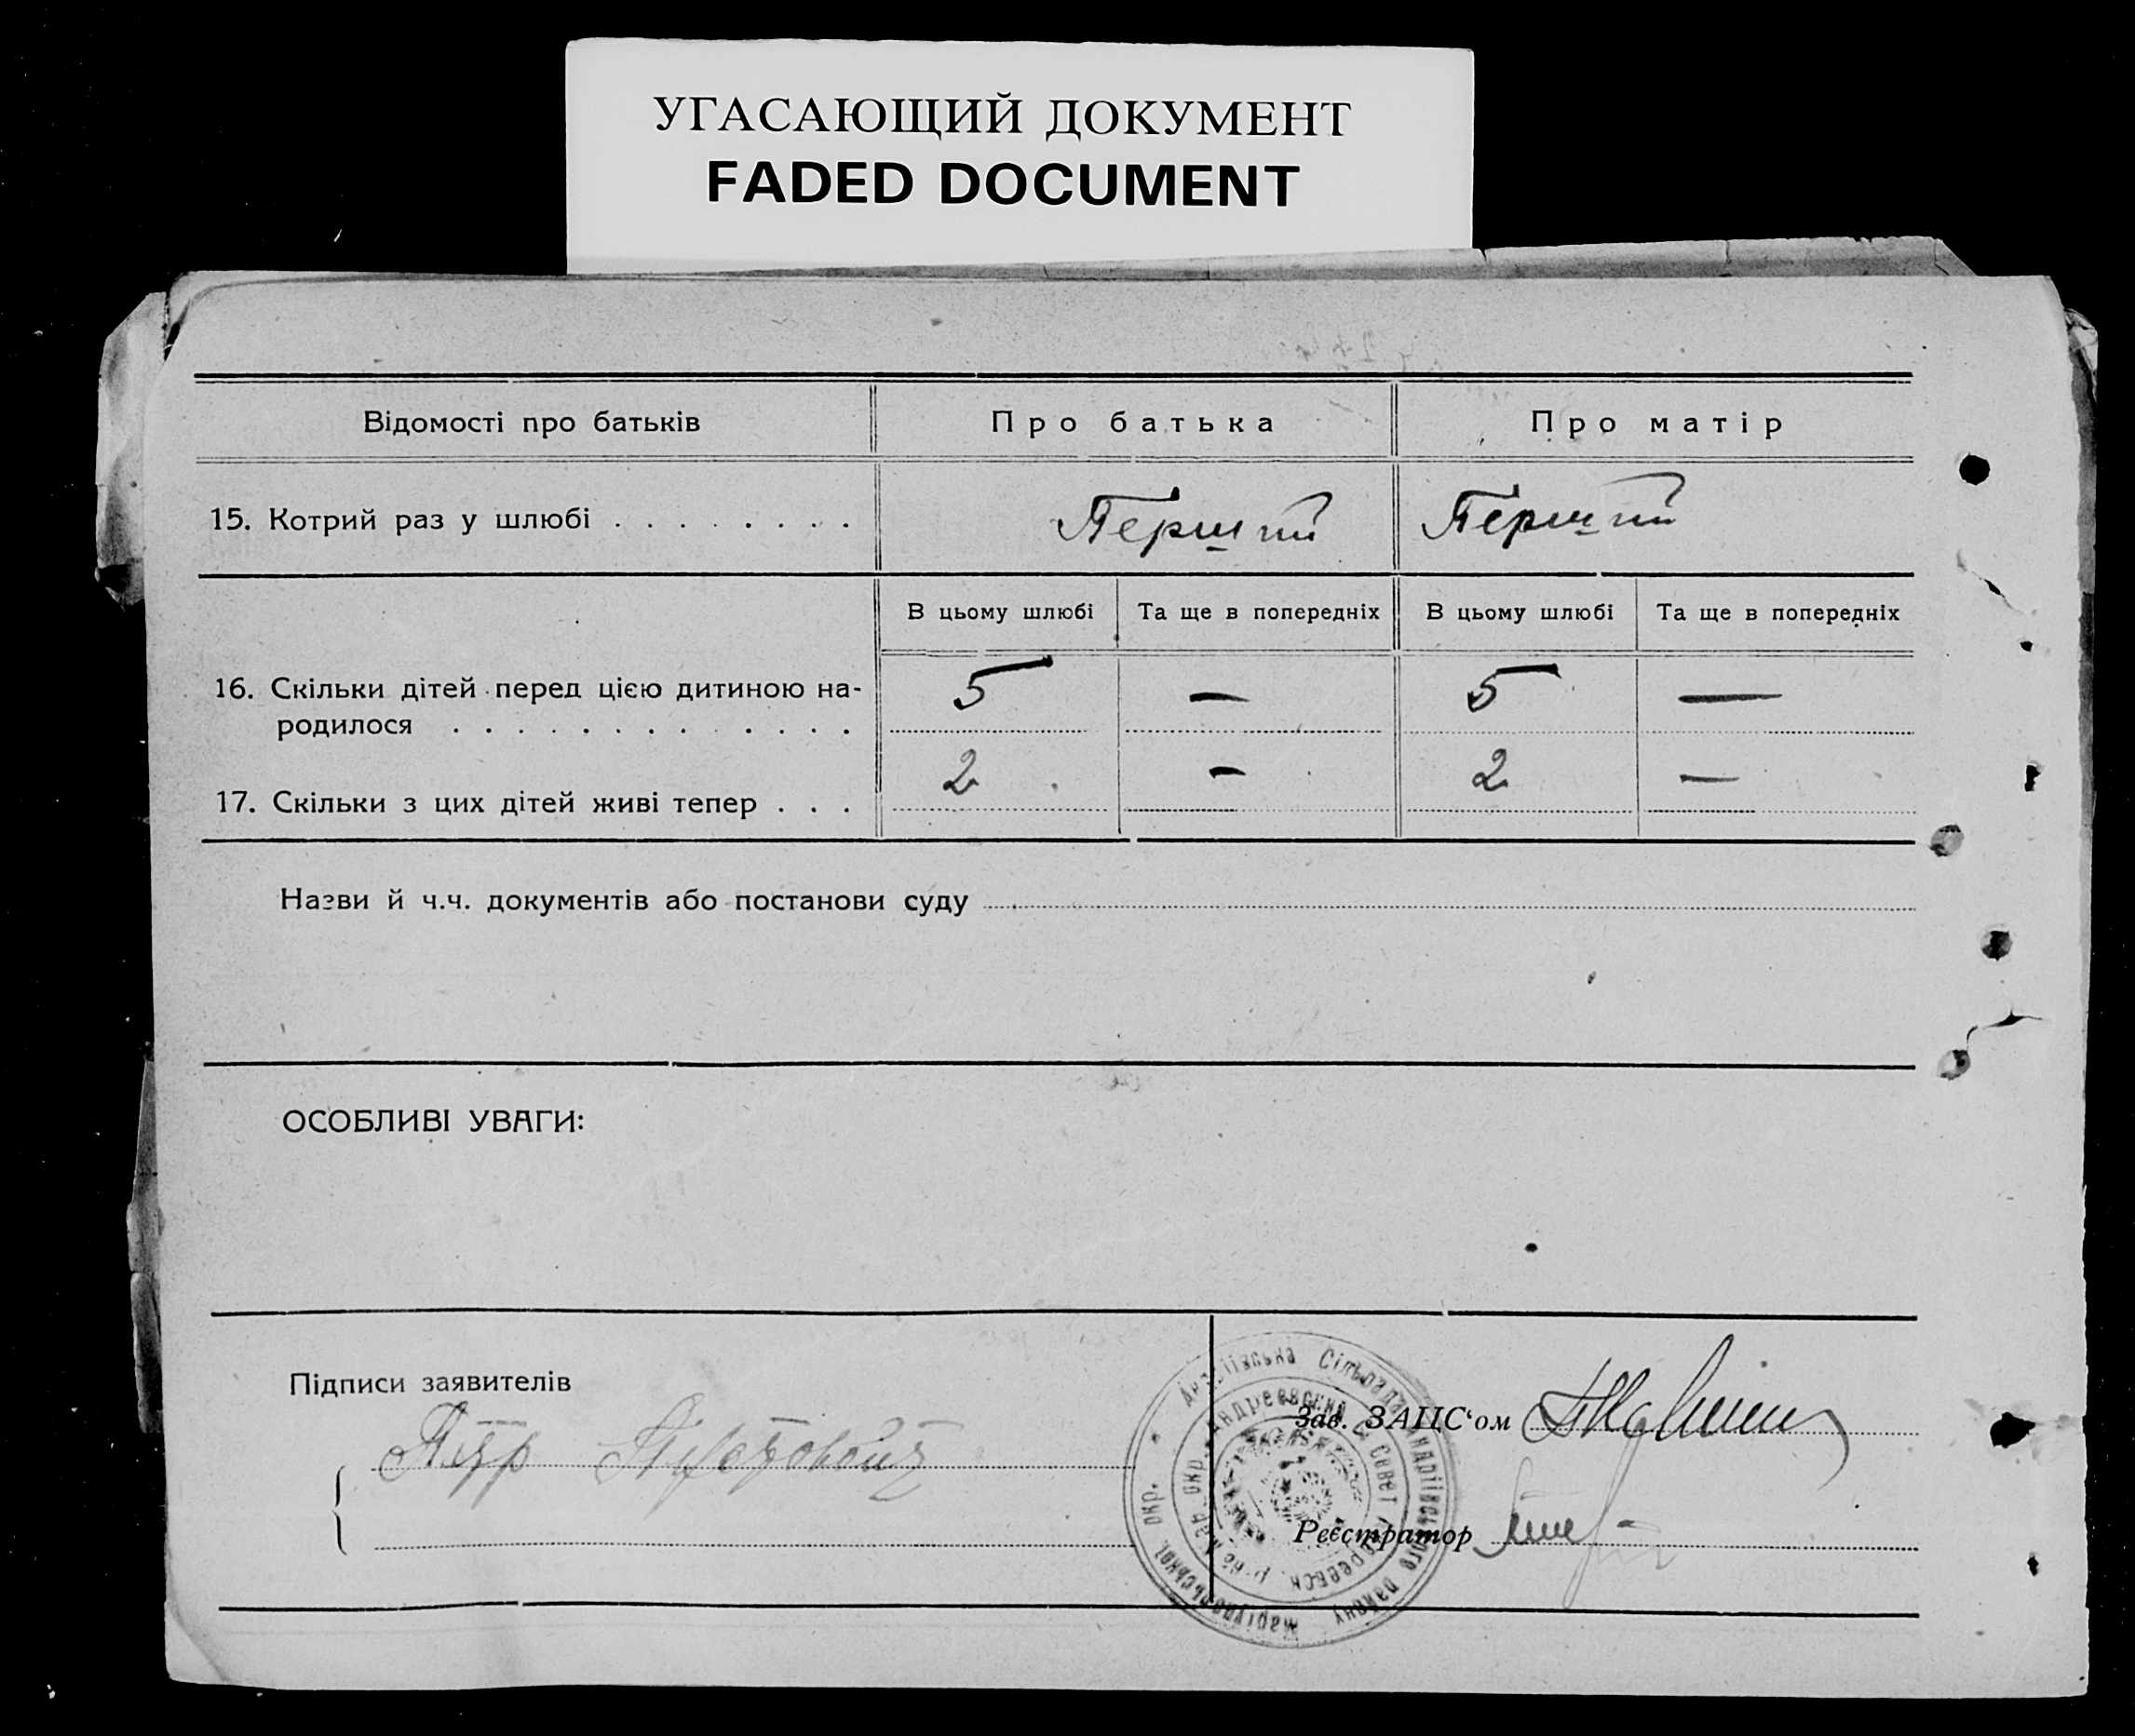 УГАСАЮЩИЙ ДОКУМЕНТ
FADED DOCUMENT
Відомості про батьків
Про батька
Про матір
15. Котрий раз у шлюбі
Перший
Перший
В цьому шлюбі
Та ще в попередніх
В цьому шлюбі
Та ще в попередніх
16. Скільки дітей перед цією дитиною на-
родилося
5 — 5 —
17. Скільки з цих дітей живі тепер . . .
2 — 2 —
Назви й ч.ч. документів або постанови суду
ОСОБЛИВІ УВАГИ:
Підписи заявителів
Зав. ЗАПС'ом
Реєстратор
Андріївська Сільрада Андріївського району Маріупольської окр.